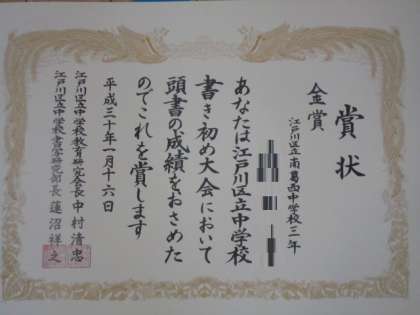 賞状
金賞
江戸川区立南葛西中学校三年
あなたは江戸川区立中学校
書き初め大会において
頭書の成績をおさめた
のでこれを賞します
平成三十年一月十六日
江戸川区立中学校教育研究会長 中村清忠
江戸川区立中学校書写研究部長 蓮沼祥之